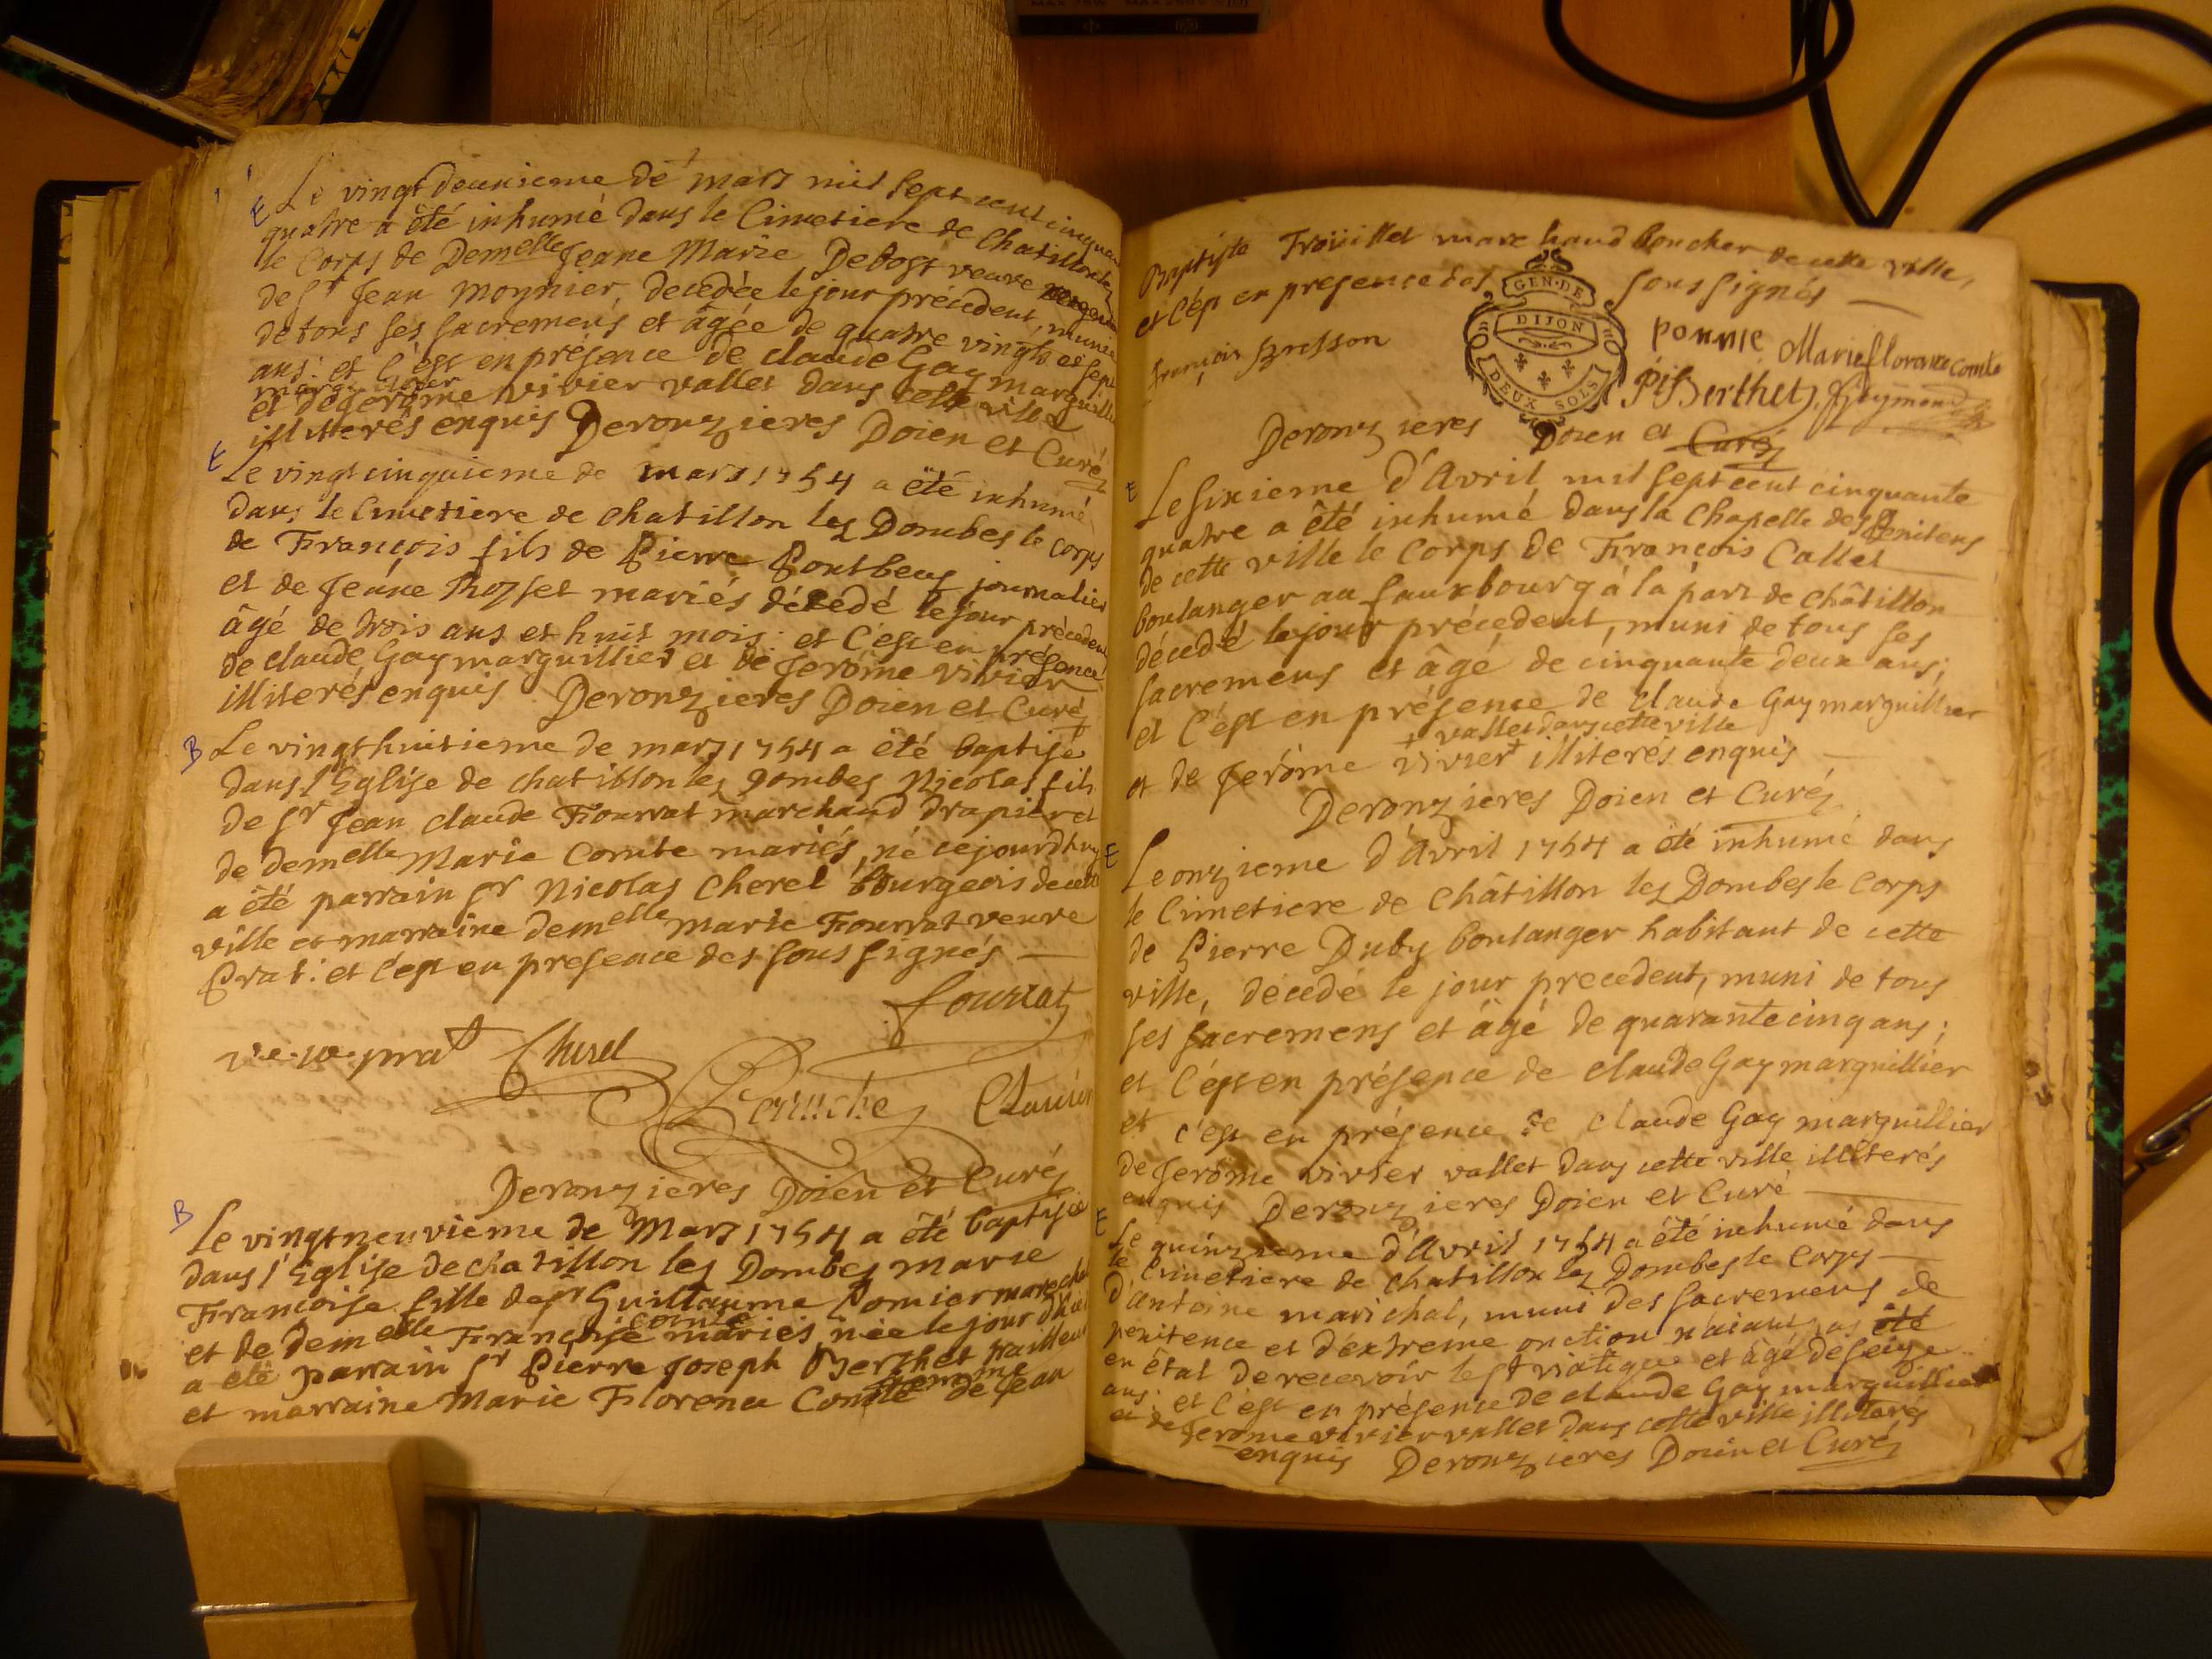 E Le vingt deuxieme de mars mil sept cent cinquante
quatre a été inhumé dans le Cimetiere de Chatillon lez
le Corps de Demelle Jeane Marie Debost veuve
de Sr Jean Moynier, decedée le jour précedent, munie
de tous ses sacremens et âgée de quatre vingts et sept
ans: et c'est en présence de claude Gay marguillier
marguillier
et de gerôme vivier vallet dans cette ville
illiterés enquis Deronzieres Doien et Curé
E Le vingt cinquieme de mars 1754 a été inhumé
dans le Cimetiere de chatillon lez Dombes le corps
de François fils de Pierre Pontbeus journalier
et de Jeane Rosset mariés décedé le jour précedent
âgé de trois ans et huit mois: et c'est en présence
de claude Gay marguillier et de Jerôme vivier
illiterés enquis Deronzieres Doien et Curé
B Le vingt huitieme de mars 1754 a été baptisé
dans l'Eglise de chatillon lez Dombes Nicolas fils
de Sr Jean claude Fourrat marchand drapier et
de demelle Marie Comte mariés, né cejourdhuy
a été parrain Sr Nicolas Cherel bourgeois de cette
ville et marraine demelle marie Fourrat veuve
Prat: et c'est en presence des sous signés
fourrat
veuve prat Cherel
Perruche
Deronzieres Doien et Curé
B Le vingt neuvieme de Mars 1754 a été baptisée
dans l'Eglise de chatillon lez Dombes marie
Françoise fille de Sr Guillaume Pomier
Comte
et de demelle Françoise mariés née le jour d'hier
a été parrain Sr Pierre Joseph Berthet
femme
et marraine Marie Florence Comte de Jean
Baptiste Troüillet marchand boucher de cette ville,
et c'est en presence des sous signés
GEN. DE
DIJON
DEUX SOLS
françois Bresson ponmie Marie florence comte
P:J: Berthet
Deronzieres Doien et Curé
E Le sixieme d'Avril mil sept cent cinquante
quatre a été inhumé dans la Chapelle des Penitens
de cette ville le Corps de François Callet
boulanger au fauxbourg à la part de châtillon
décedé le jour précedent, muni de tous ses
sacremens et âgé de cinquante deux ans;
et c'est en présence de claude Gay marguillier
+ vallet dans cette ville
et de Jerôme vivier + illiterés enquis
Deronzieres Doien et Curé
E Le onzieme d'Avril 1754 a été inhumé dans
le Cimetiere de Châtillon lez Dombes le Corps
de Pierre Duby boulanger habitant de cette
ville, décedé le jour precedent, muni de tous
ses sacremens et âgé de quarante cinq ans;
et c'est en présence de claude Gay marguillier
et c'est en présence de claude Gay marguillier
de Jerôme vivier vallet dans cette ville illiterés
enquis Deronzieres Doien et Curé
E Le quinzieme d'Avril 1754 a été inhumé dans
le Cimetiere de chatillon lez Dombes le Corps
d'Antoine marichal, muni des sacremens de
penitence et d'extreme onction n'aiant pas été
en état de recevoir le St viatique et âgé de seize
ans: et c'est en présence de claude Gay marguillier
et de Jerôme vivier vallet dans cette ville illiterés
enquis Deronzieres Doien et Curé